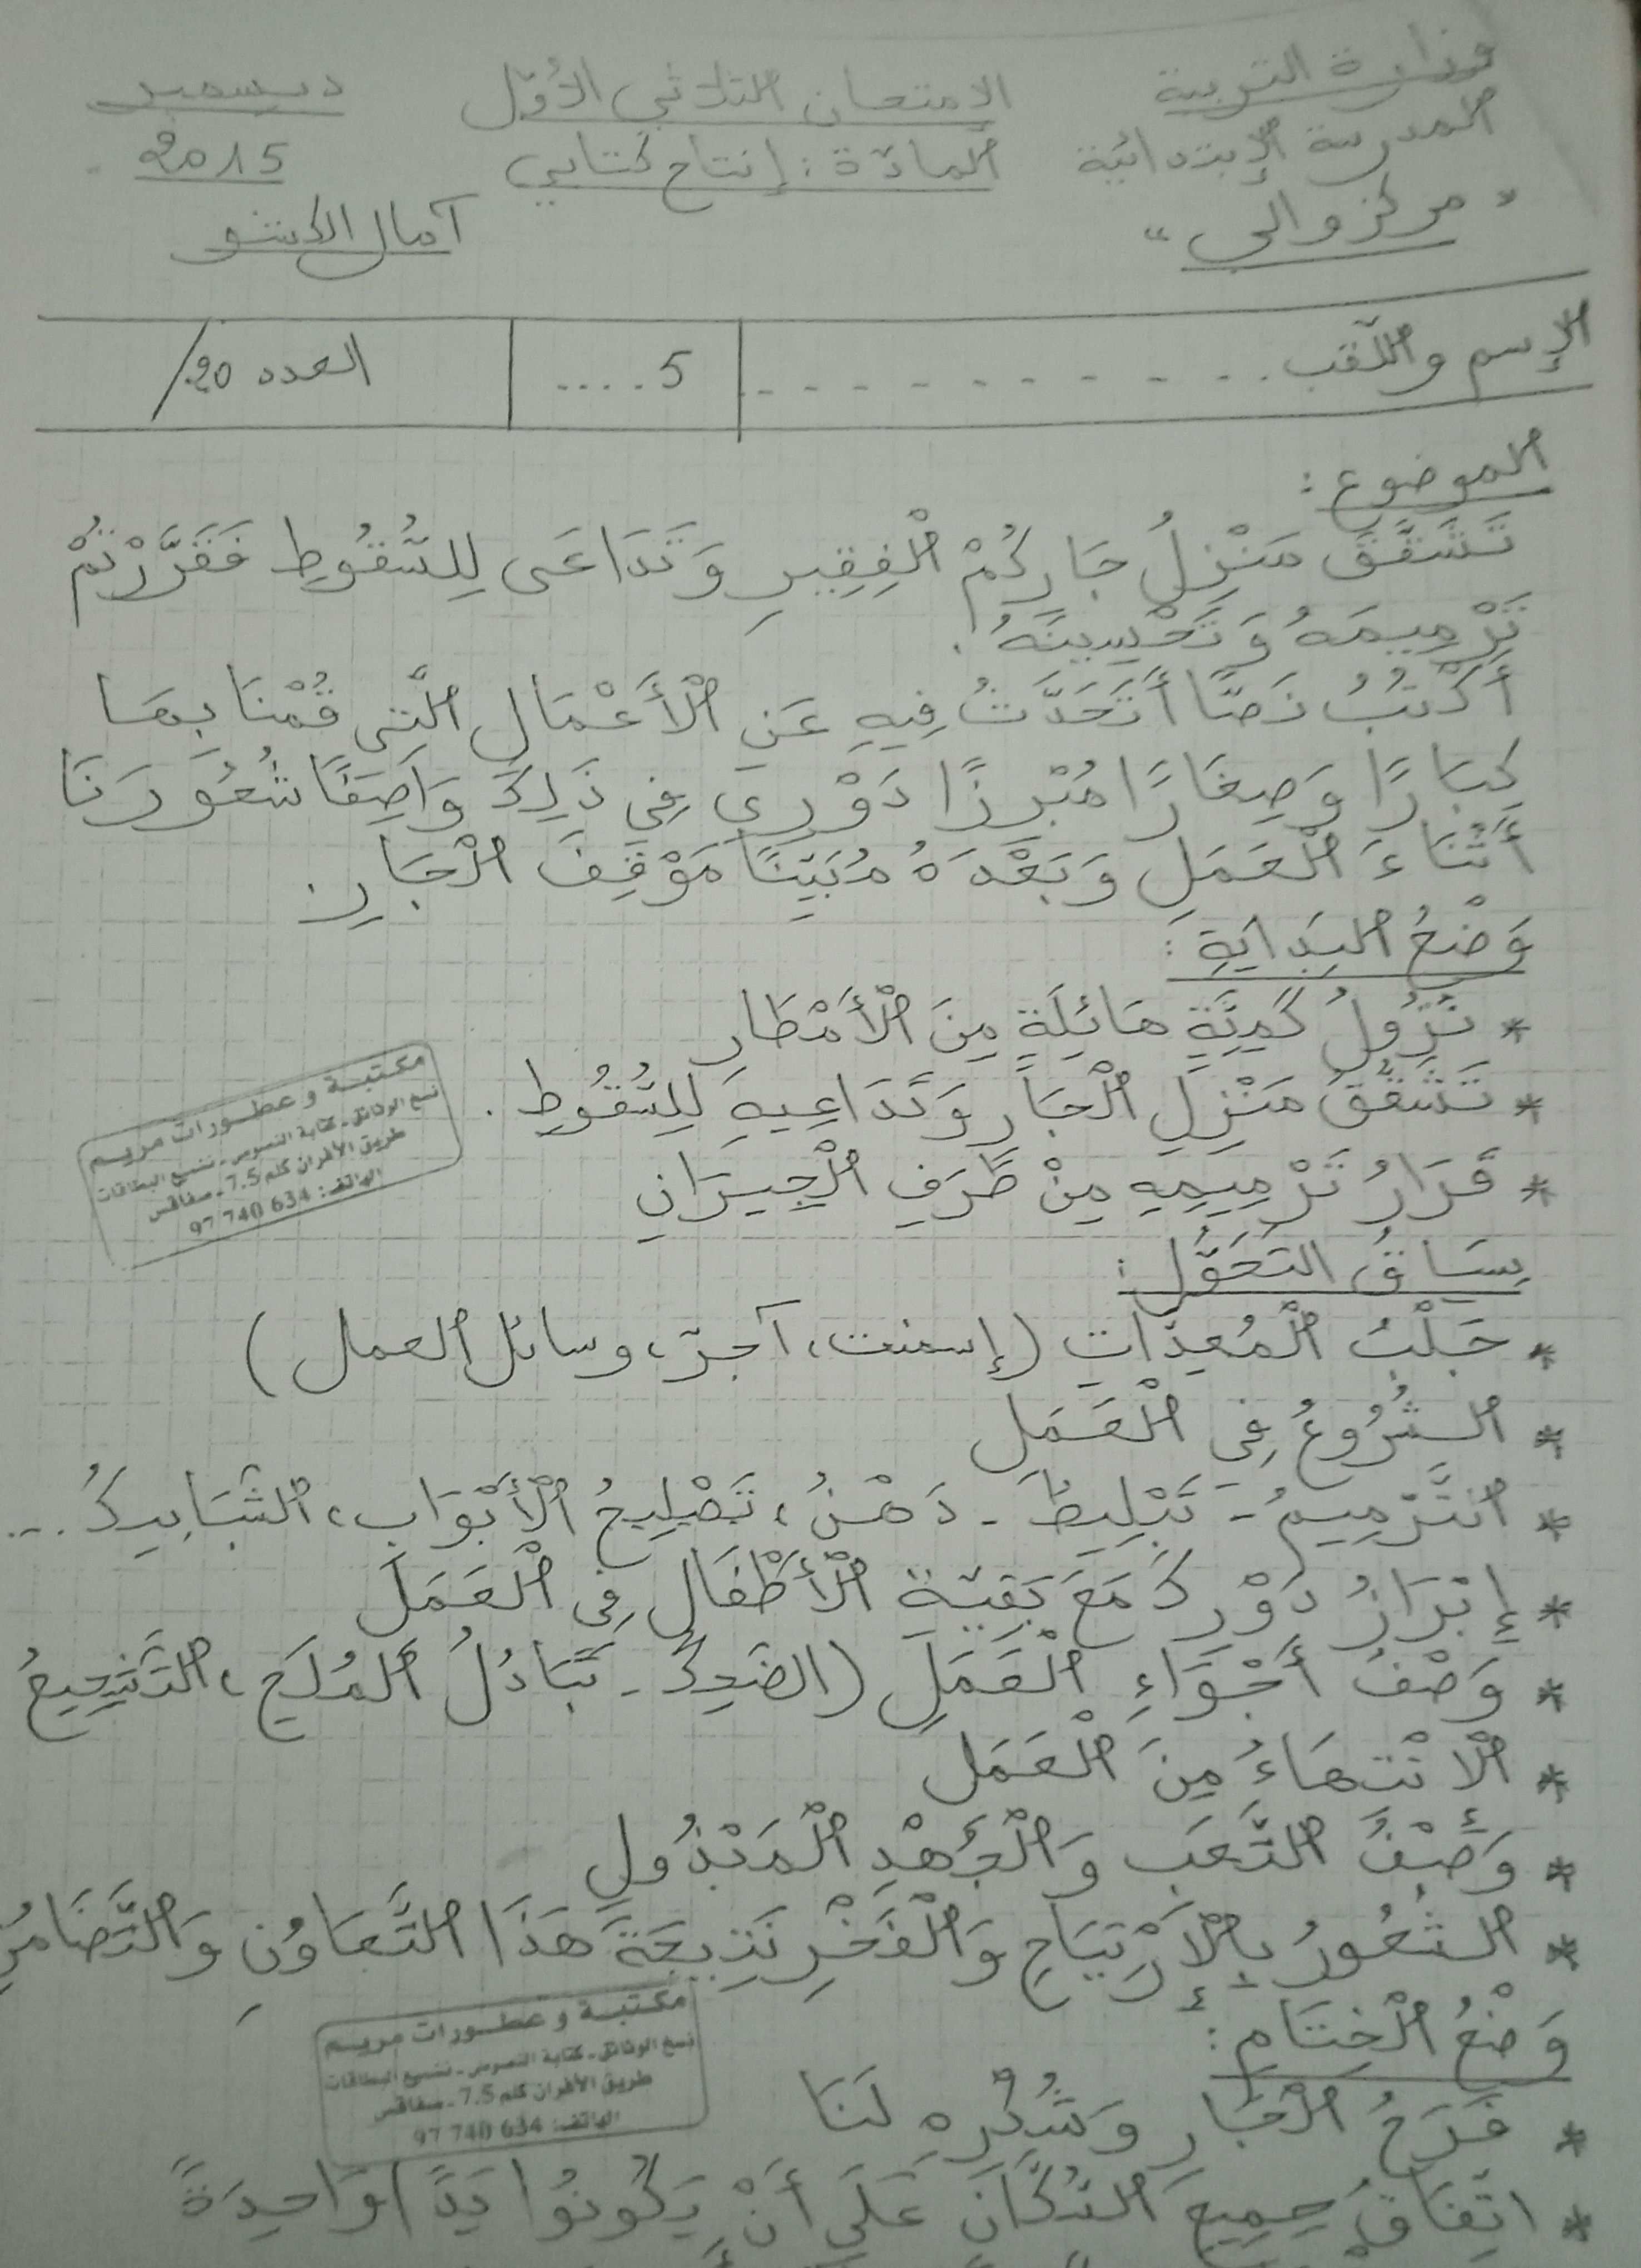 وزارة التربية
المدرسة الإبتدائية
"مركز والي"
الامتحان الثلاثي الأوّل
المادّة : إنتاج كتابي
ديسمبر
2015
آمال الكشو
الإسم واللّقب . . . . . . . . . . . .
5 . . . . .
العدد 20/
الموضوع :
تَشَقَّقَ مَنْزِلُ جَارِكُمْ الْفَقِيرِ وَتَدَاعَى لِلسُّقُوطِ فَقَرَّرْتُمْ
تَرْمِيمَهُ وَتَحْسِينَهُ .
أَكْتُبُ نَصًّا أَتَحَدَّثُ فِيهِ عَنِ الْأَعْمَالِ الَّتِي قُمْنَا بِهَا
كِبَارًا وَصِغَارًا مُبْرِزًا دَوْرِي فِي ذَلِكَ وَاصِفًا شُعُورَنَا
أَثْنَاءَ الْعَمَلِ وَبَعْدَهُ مُبَيِّنًا مَوْقِفَ الْجَارِ .
وَضْعُ البِدَايَةِ :
* نُزُولُ كَمِيَّةٍ هَائِلَةٍ مِنَ الْأَمْطَارِ
* تَشَقُّقُ مَنْزِلِ الْجَارِ وَتَدَاعِيهِ لِلسُّقُوطِ .
* قَرَارُ تَرْمِيمِهِ مِنْ طَرَفِ الْجِيرَانِ
سِيَاقُ التَحَوُّلِ :
* جَلْبُ الْمُعِدَّاتِ (إسمنت، آجرّ، وسائل العمل)
* الشُرُوعُ فِي الْعَمَلِ
* التَّرْمِيمُ - تَبْلِيطُ - دَهْنُ ، تَصْلِيحُ الْأَبْوَابِ، الشَّبَابِيكُ ...
* إِبْرَازُ دَوْرِكَ مَعَ بَقِيَّةِ الْأَطْفَالِ فِي الْعَمَلِ
* وَصْفُ أَجْوَاءِ الْعَمَلِ (الضَحِكُ - تَبَادُلُ الْمُلَحِ ، التَشْجِيعُ
* الْانْتِهَاءُ مِنَ الْعَمَلِ
* وَصْفُ التَّعَبِ وَالْجُهْدِ الْمَبْذُولِ
* الشُعُورُ بِالْإِرْتِيَاحِ وَالْفَخْرِ نَتِيجَةَ هَذَا التَّعَاوُنِ وَالتَّضَامُنِ
وَضْعُ الْخِتَامِ :
* فَرَحُ الْجَارِ وَشُكْرِهِ لَنَا
* اتِّفَاقُ جَمِيعِ السُّكَّانِ عَلَى أَنْ يَكُونُوا يَدًا وَاحِدَةً
مكتبة و عطورات مريم
نسخ الوثائق - كتابة النصوص - تشبيع البطاقات
طريق الأفران كلم 7.5 - صفاقس
الهاتف: 634 740 97
مكتبة و عطورات مريم
نسخ الوثائق - كتابة النصوص - تشبيع البطاقات
طريق الأفران كلم 7.5 - صفاقس
الهاتف: 634 740 97